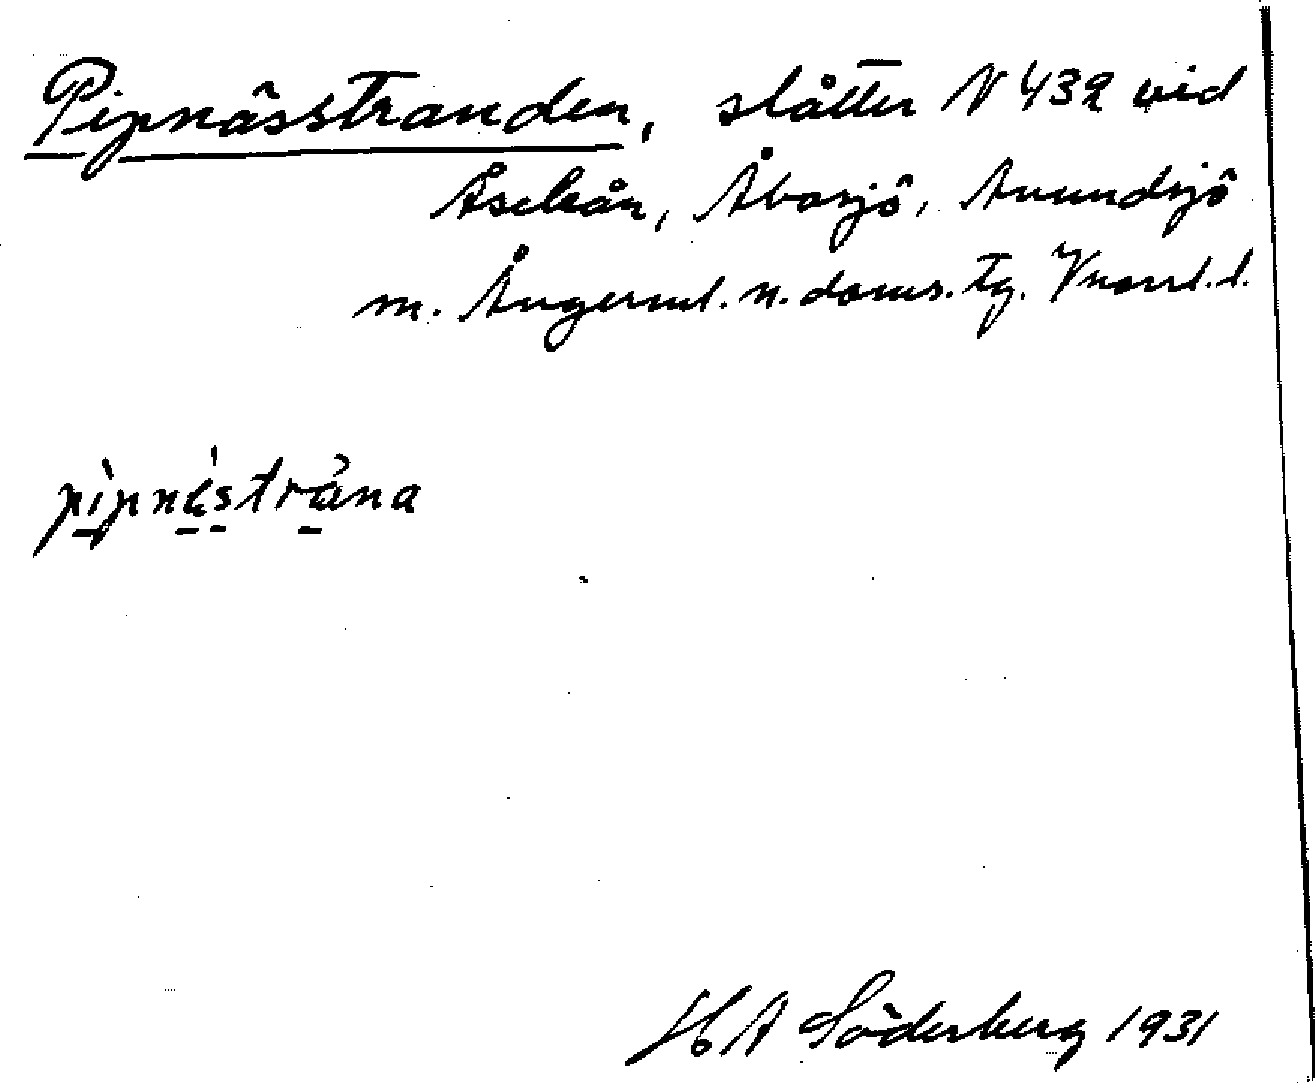 Pipnässtranden, slåtter N 432 vid
Åseleån, Åbosjö, Anundsjö
m. Ångerml. n. doms. tg. Vnorrl. l.
pipnästrána
H A Söderberg 1931